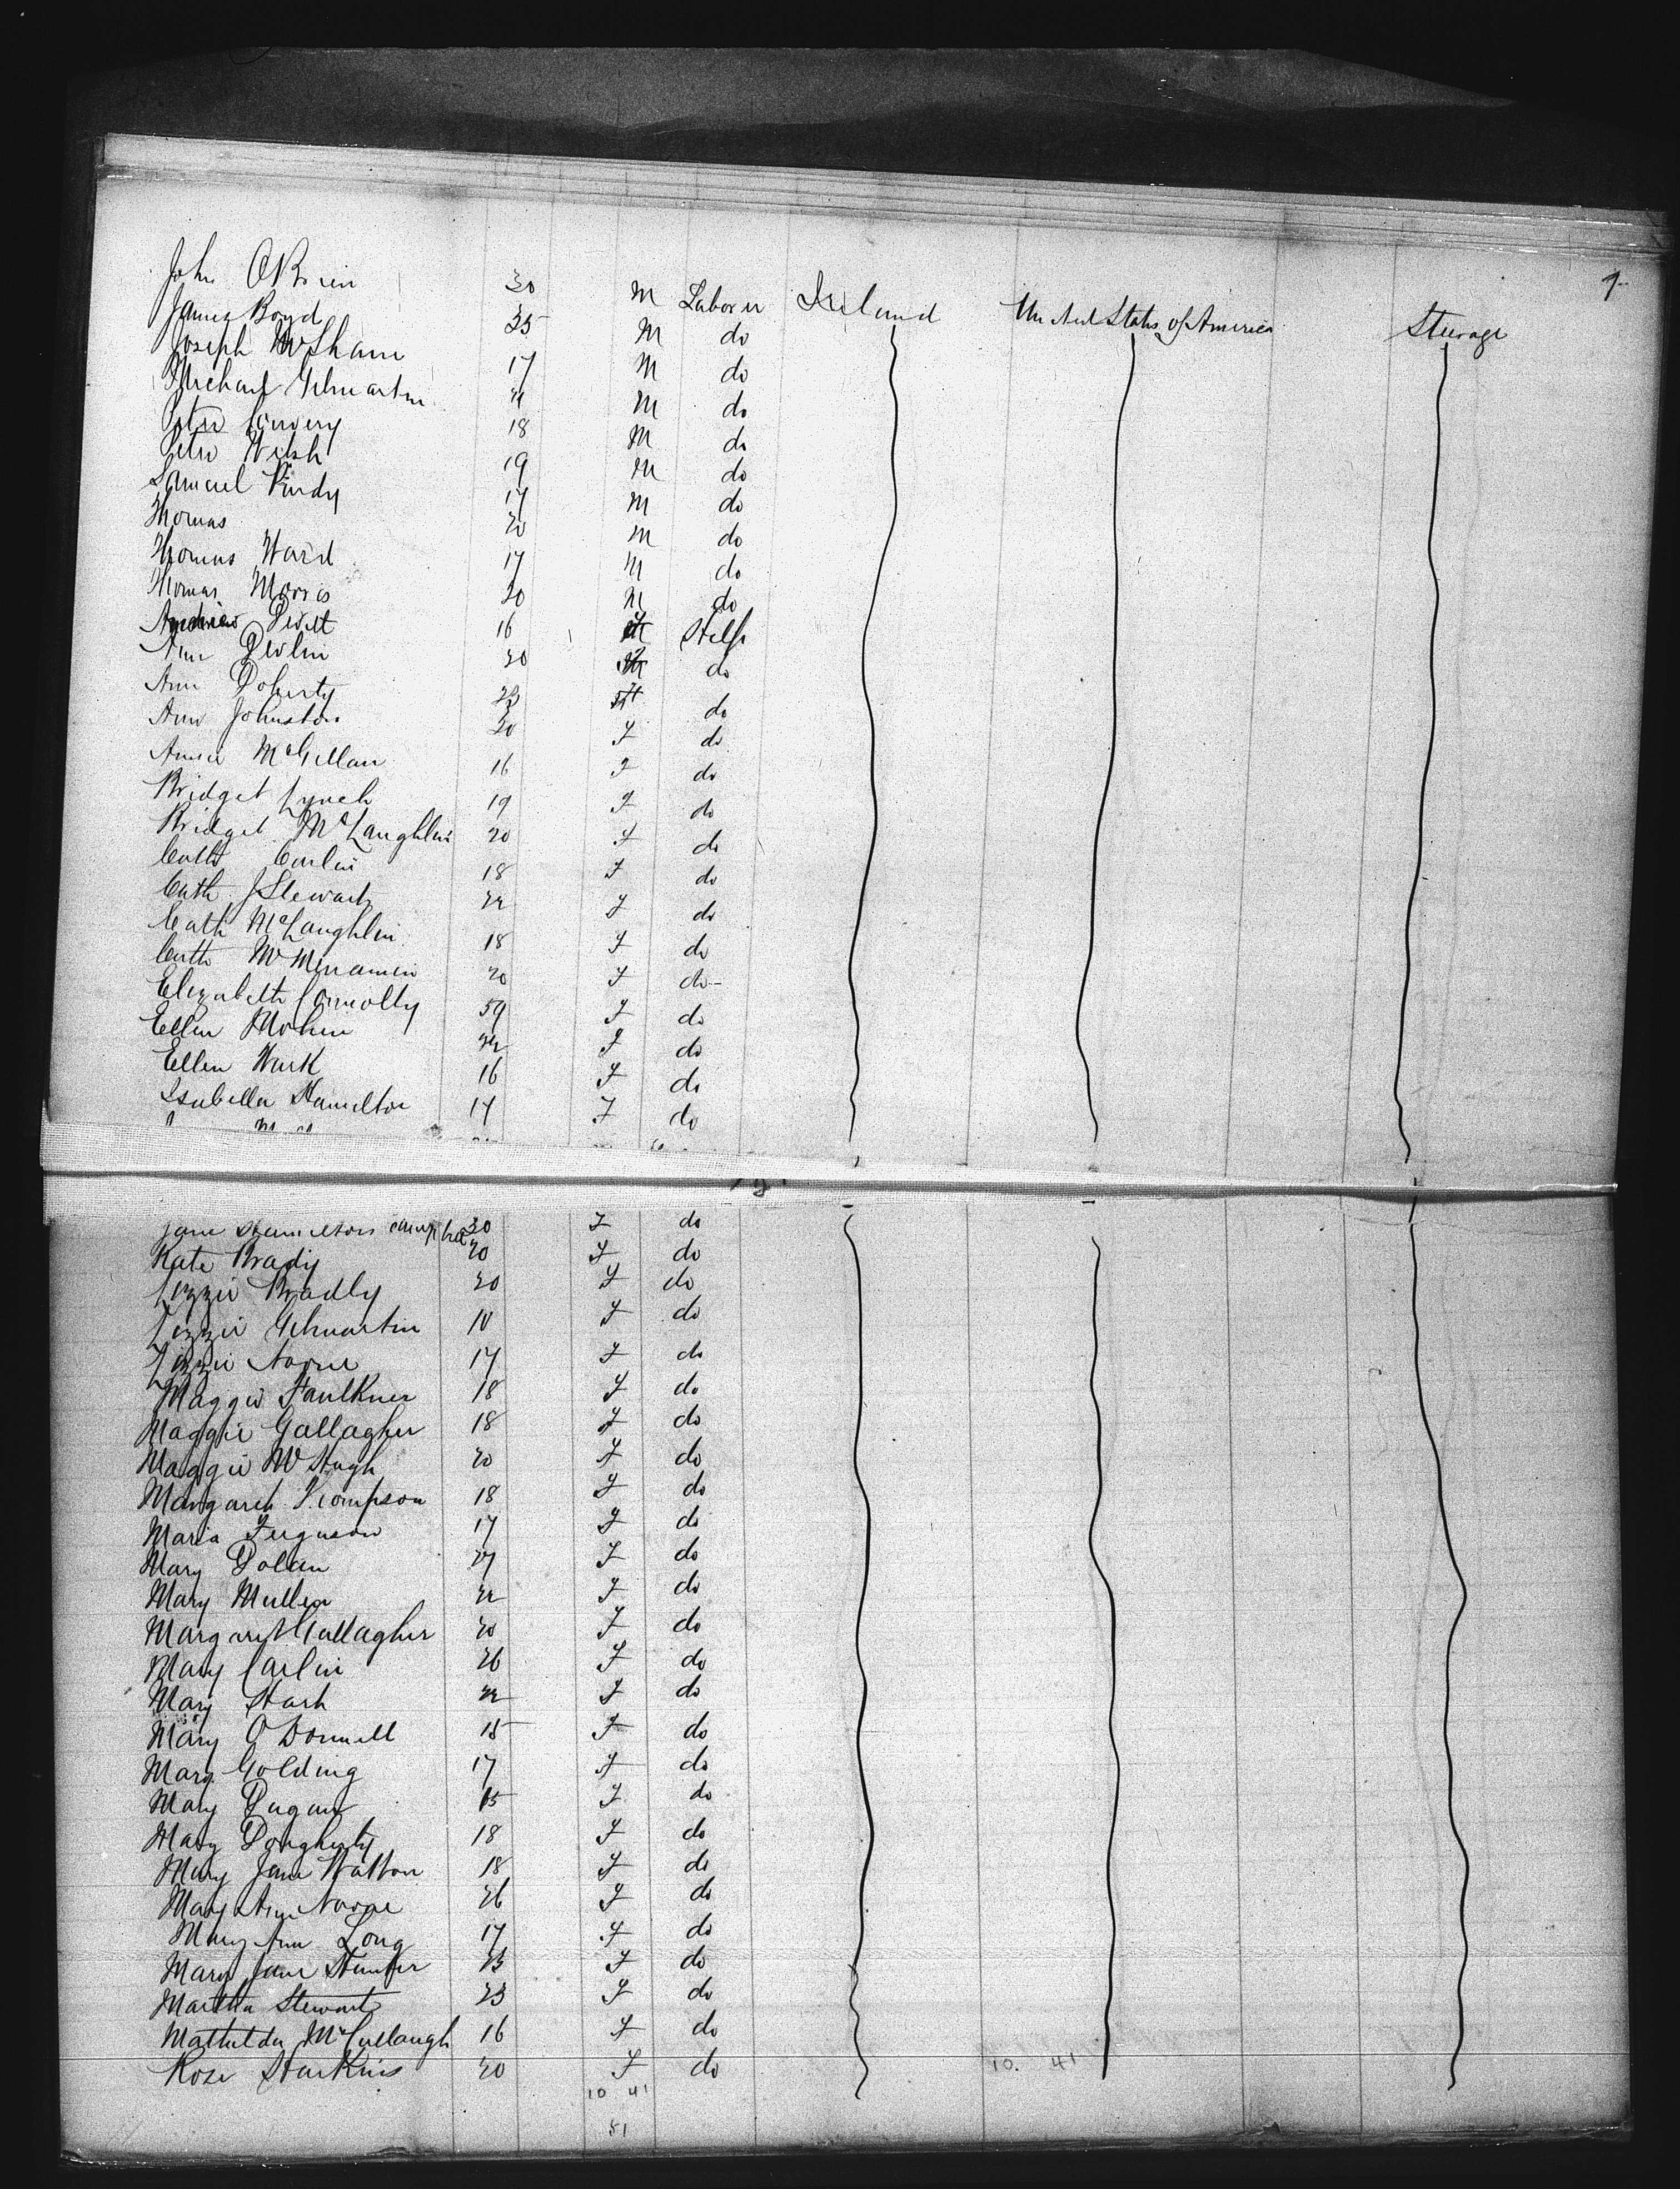 9
John OBrien 20 M Laborer Ireland United States of America Steerage
James Boyd 25 M do
Joseph McShane 17 M do
Michael Gilmartin 21 M do
Peter Convery 18 M do
Peter Welsh 19 M do
Samuel Purdy 17 M do
Thomas 20 M do
Thomas Ward 17 M do
Thomas Morris 20 M do
Devitt 16 F Help
Ann Devlin 20 F do
Ann Doherty 23 F do
Ann Johnston 20 F do
Annie McGillan 16 F do
Bridget Lynch 19 F do
Bridget McLaughlin 20 F do
Cath Carlin 18 F do
Cath J Stewart 22 F do
Cath McLaughlin 18 F do
Cath McMenamin 20 F do
Elizabeth Connolly 59 F do
Ellen Mohan 22 F do
Ellen Wark 16 F do
Isabella Hamilton 17 F do
Jane Hamilton 20 F do
Kate Brady 20 F do
Lizzie Bradly 20 F do
Lizzie Gilmartin 18 F do
Lizzie 17 F do
Maggie Faulkner 18 F do
Maggie Gallagher 18 F do
Maggie McHugh 20 F do
Margaret Thompson 18 F do
Maria Ferguson 17 F do
Mary Dolan 27 F do
Mary Mullen 22 F do
Margaret Gallagher 20 F do
Mary Carlin 26 F do
Mary 22 F do
Mary O Donnell 18 F do
Mary Golding 17 F do
Mary Dugan F do
Mary Dougherty 18 F do
Mary Jane Watton 18 F do
Mary Ann 26 F do
Mary Ann Long 17 F do
Mary Jane Hunter F do
Martha Stewart 23 F do
Mathilda McCullaugh 16 F do
Rose Harkins 20 F do
10 41 10. 41
51